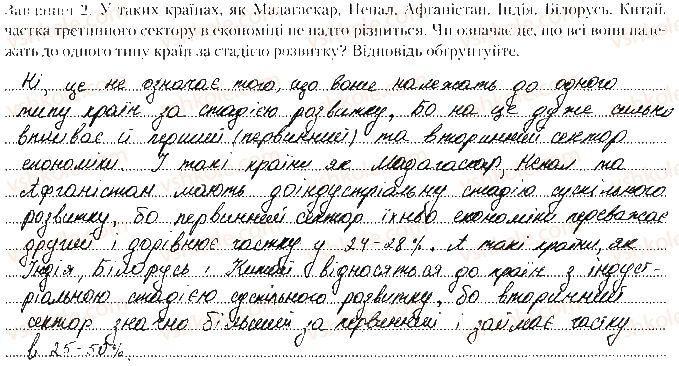 Завдання 2. У таких країнах, як Мадагаскар, Непал, Афганістан, Індія, Білорусь, Китай,
частка третинного сектору в економіці не надто різниться. Чи означає це, що всі вони нале-
жать до одного типу країн за стадією розвитку? Відповідь обґрунтуйте.
Ні, це не означає того, що вони належать до одного
типу країн за стадією розвитку. Бо на це дуже сильно
впливає й перший (первинний) та вторинний сектор
економіки. І такі країни як Мадагаскар, Непал та
Афганістан мають доіндустріальну стадію суспільного
розвитку, бо первинний сектор їхньої економіки переважає
другий і дорівнює частку у 24-28%. А такі країни, як
Індія, Білорусь і Китай відносяться до країн з індуст-
ріальною стадією суспільного розвитку, бо вторинний
сектор значно більший за первинний і займає частку
в 25-50%.